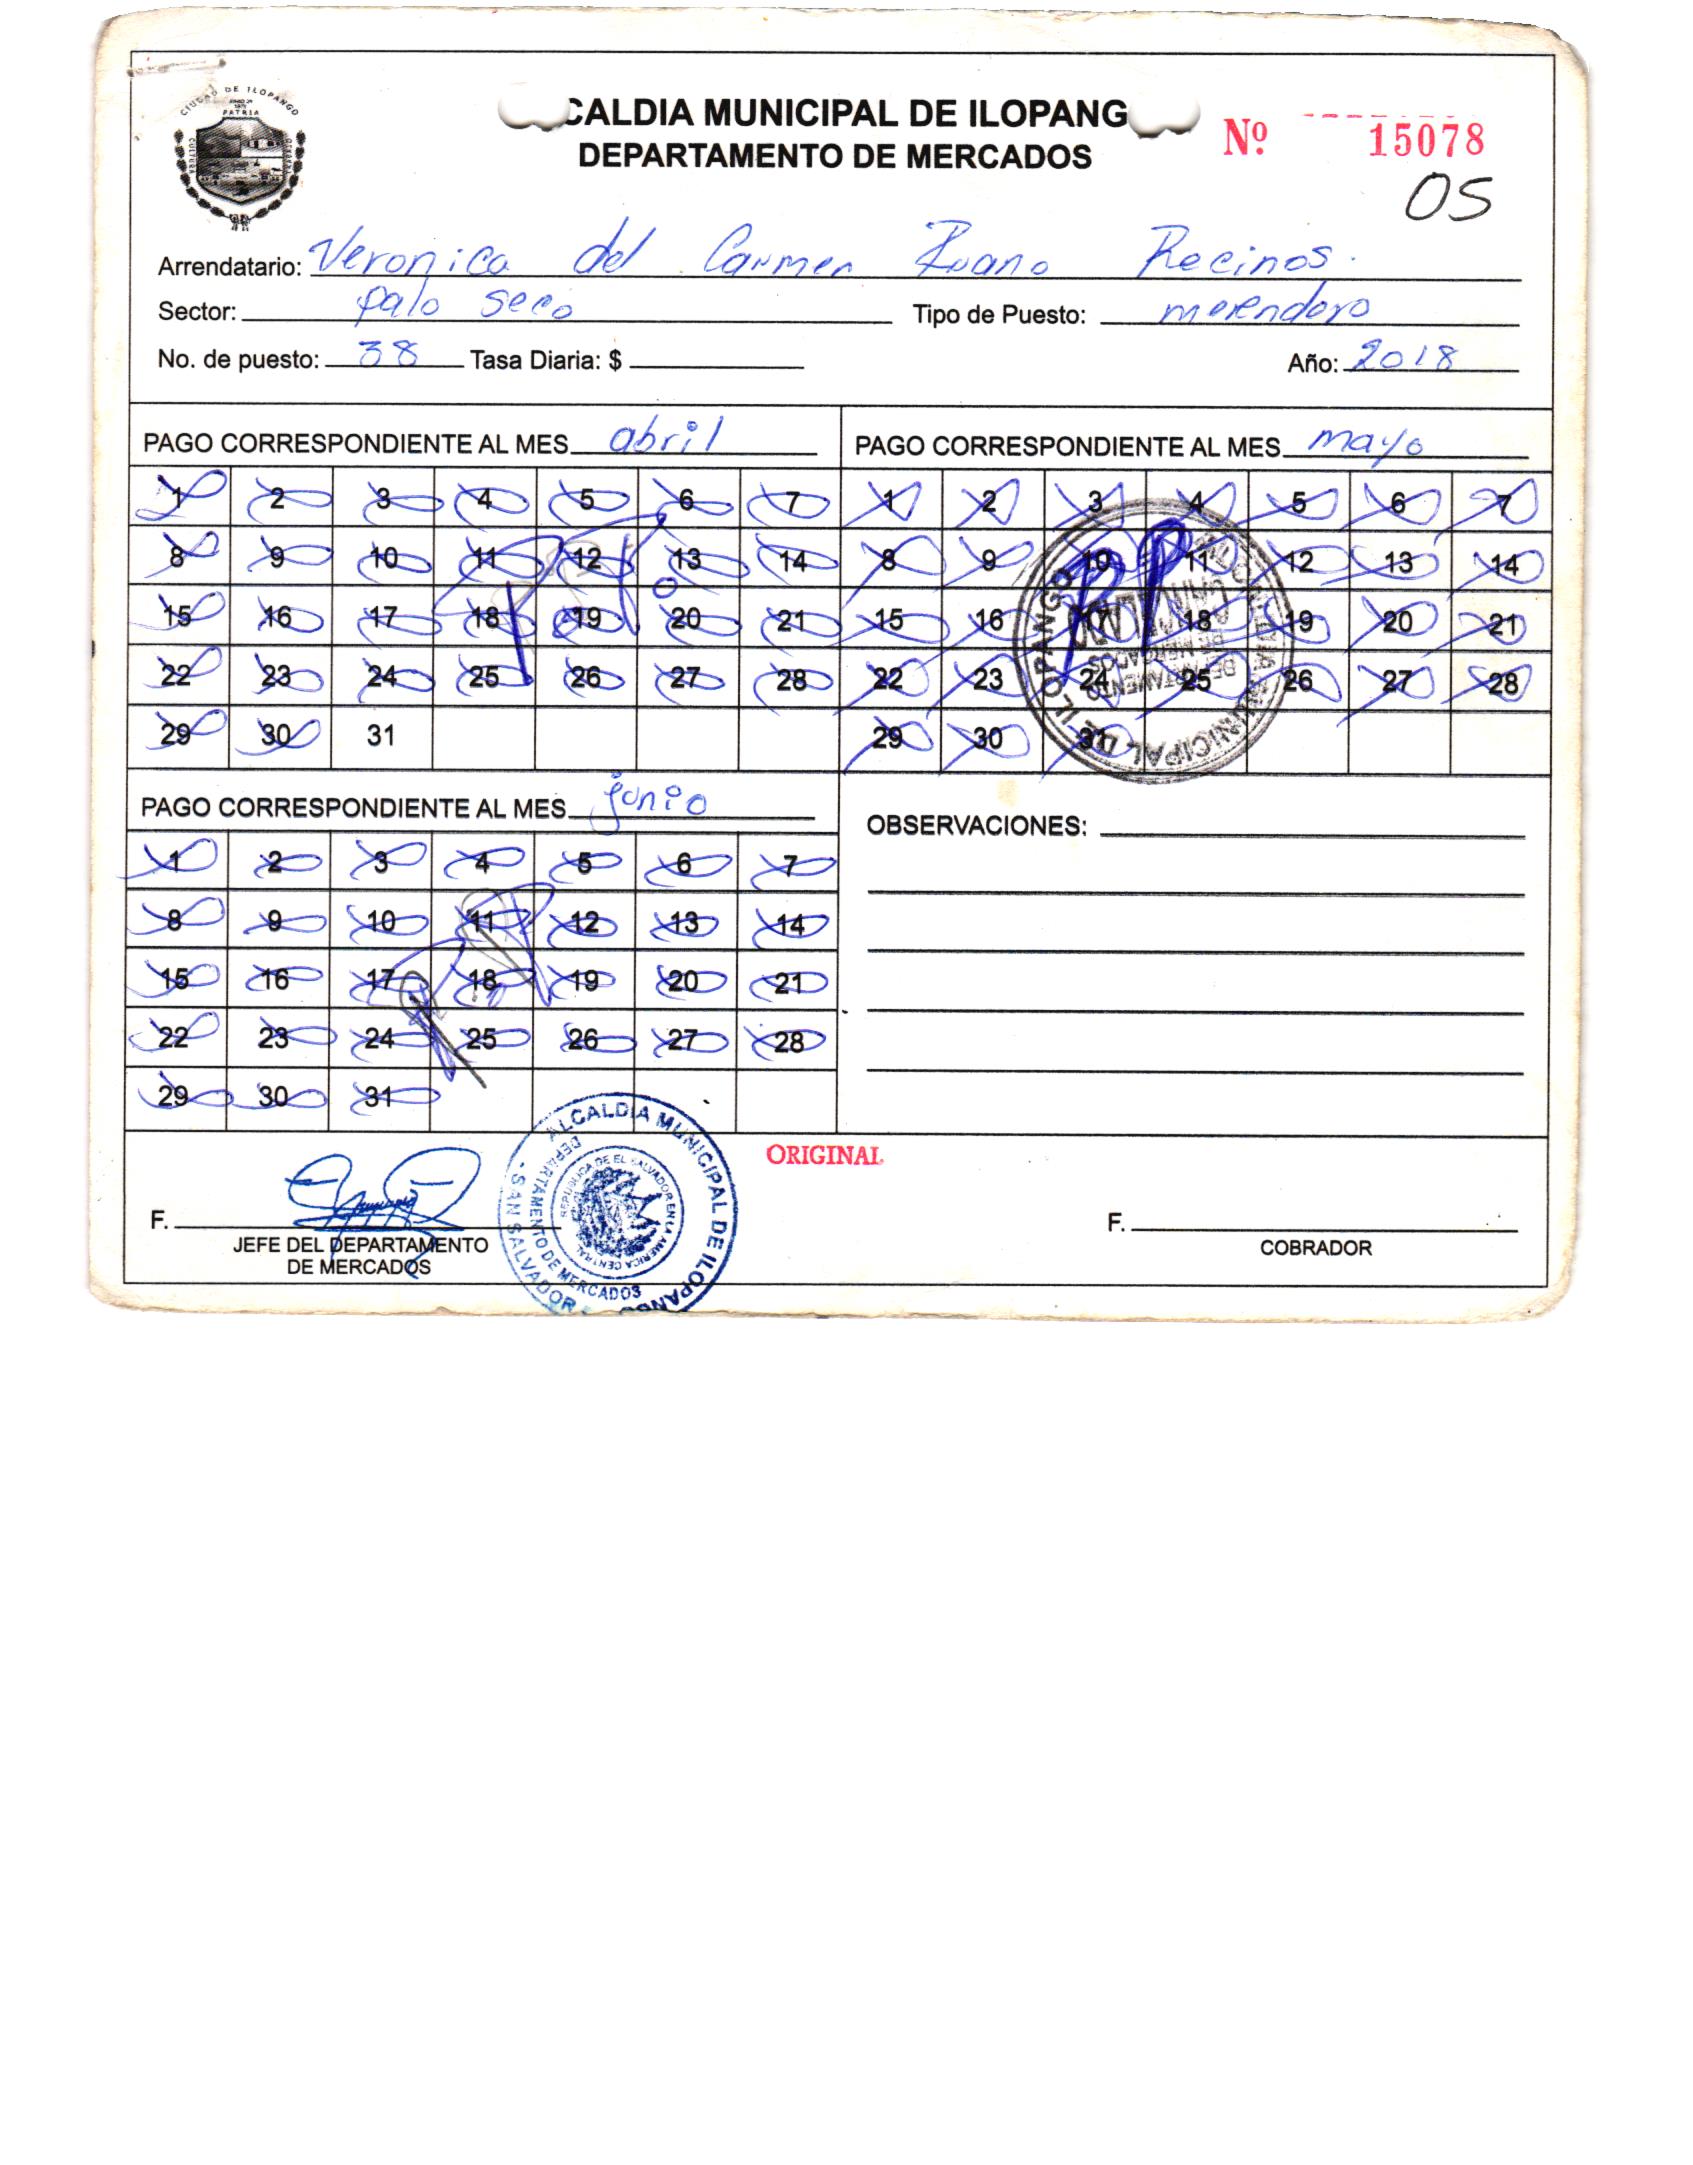 CIUDAD DE ILOPANGO
PATRIA
CULTURA
CALDIA MUNICIPAL DE ILOPANG
DEPARTAMENTO DE MERCADOS
Nº 15078
05
Arrendatario: Veronica del Carmen Ruano Recinos.
Sector: palo seco Tipo de Puesto: merendero
No. de puesto: 38 Tasa Diaria: $ Año: 2018
PAGO CORRESPONDIENTE AL MES abril
1 2 3 4 5 6 7
8 9 10 11 12 13 14
15 16 17 18 19 20 21
22 23 24 25 26 27 28
29 30 31
PAGO CORRESPONDIENTE AL MES mayo
1 2 3 4 5 6 7
8 9 10 11 12 13 14
15 16 17 18 19 20 21
22 23 24 25 26 27 28
29 30 31
MUNICIPAL DE ILOPANGO
DEPARTAMENTO
DE MERCADOS
PAGO CORRESPONDIENTE AL MES junio
1 2 3 4 5 6 7
8 9 10 11 12 13 14
15 16 17 18 19 20 21
22 23 24 25 26 27 28
29 30 31
OBSERVACIONES:
ORIGINAL
F.
JEFE DEL DEPARTAMENTO
DE MERCADOS
ALCALDIA MUNICIPAL DE ILOPANGO
DEPARTAMENTO DE MERCADOS
SAN SALVADOR
REPUBLICA DE EL SALVADOR EN LA AMERICA CENTRAL
F.
COBRADOR